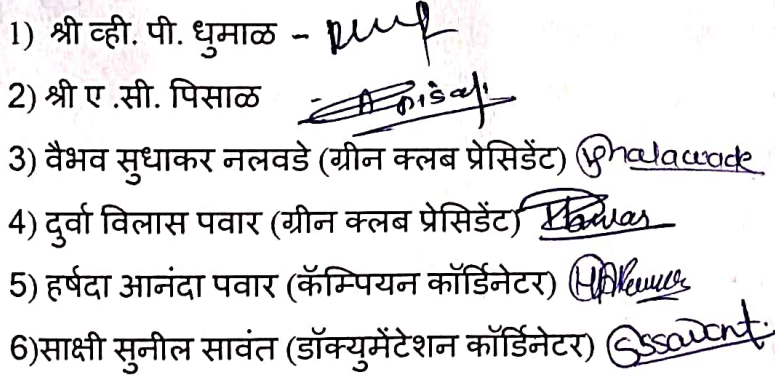 1) श्री व्ही. पी. धुमाळ -
2) श्री ए .सी. पिसाळ - A Pisal
3) वैभव सुधाकर नलवडे (ग्रीन क्लब प्रेसिडेंट) Vnalawade
4) दुर्वा विलास पवार (ग्रीन क्लब प्रेसिडेंट) Pawar
5) हर्षदा आनंदा पवार (कॅम्पियन कॉर्डिनेटर) HAPawar
6)साक्षी सुनील सावंत (डॉक्युमेंटेशन कॉर्डिनेटर) Sssawant.